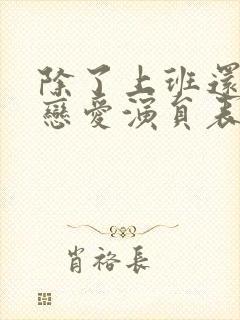 除了上班還
戀愛演員表
肖裕長